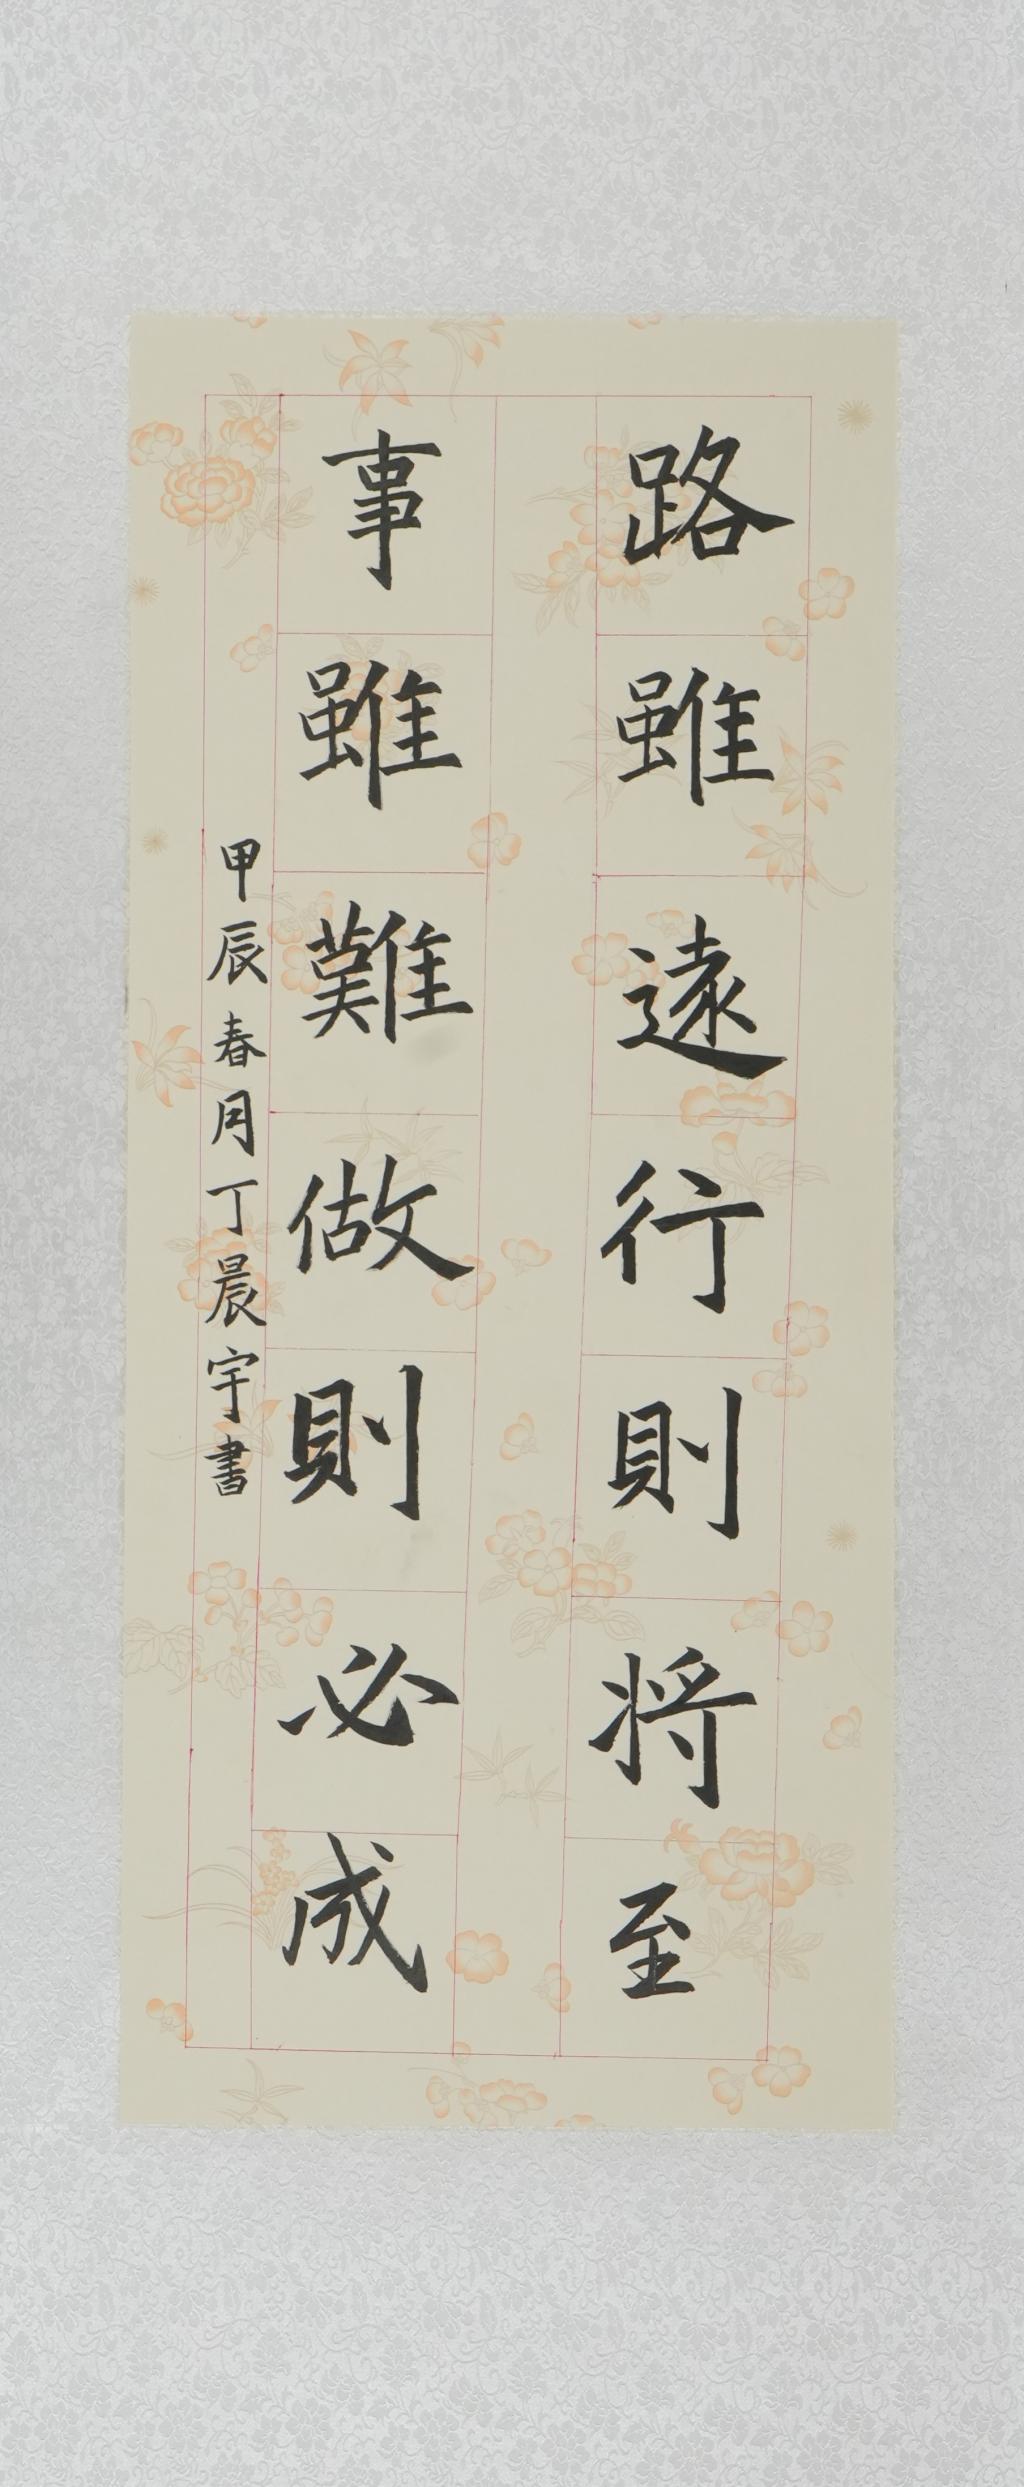 路雖遠行則将至
事雖難做則必成
甲辰春月丁晨宇書